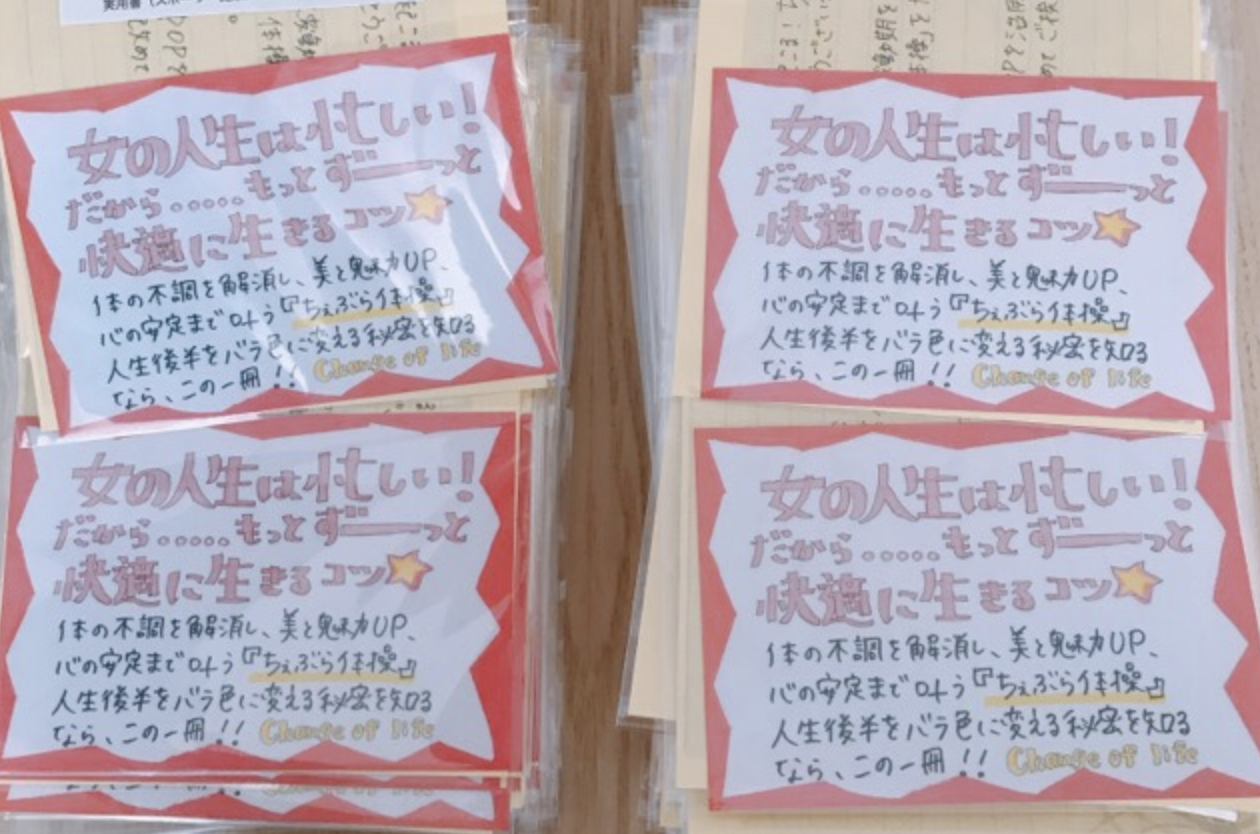 女の人生は忙しい!
だから.....もっとずーーっと
快適に生きるコツ
体の不調を解消し、美と魅力UP、
心の安定まで叶う『ちぇぶら体操』
人生後半をバラ色に変える秘密を知る
なら、この一冊!! Change of life
女の人生は忙しい!
だから.....もっとずーーっと
快適に生きるコツ
体の不調を解消し、美と魅力UP、
心の安定まで叶う『ちぇぶら体操』
人生後半をバラ色に変える秘密を知る
なら、この一冊!! Change of life
女の人生は忙しい!
だから.....もっとずーーっと
快適に生きるコツ
体の不調を解消し、美と魅力UP、
心の安定まで叶う『ちぇぶら体操』
人生後半をバラ色に変える秘密を知る
なら、この一冊!! Change of life
女の人生は忙しい!
だから.....もっとずーーっと
快適に生きるコツ
体の不調を解消し、美と魅力UP、
心の安定まで叶う『ちぇぶら体操』
人生後半をバラ色に変える秘密を知る
なら、この一冊!! Change of life